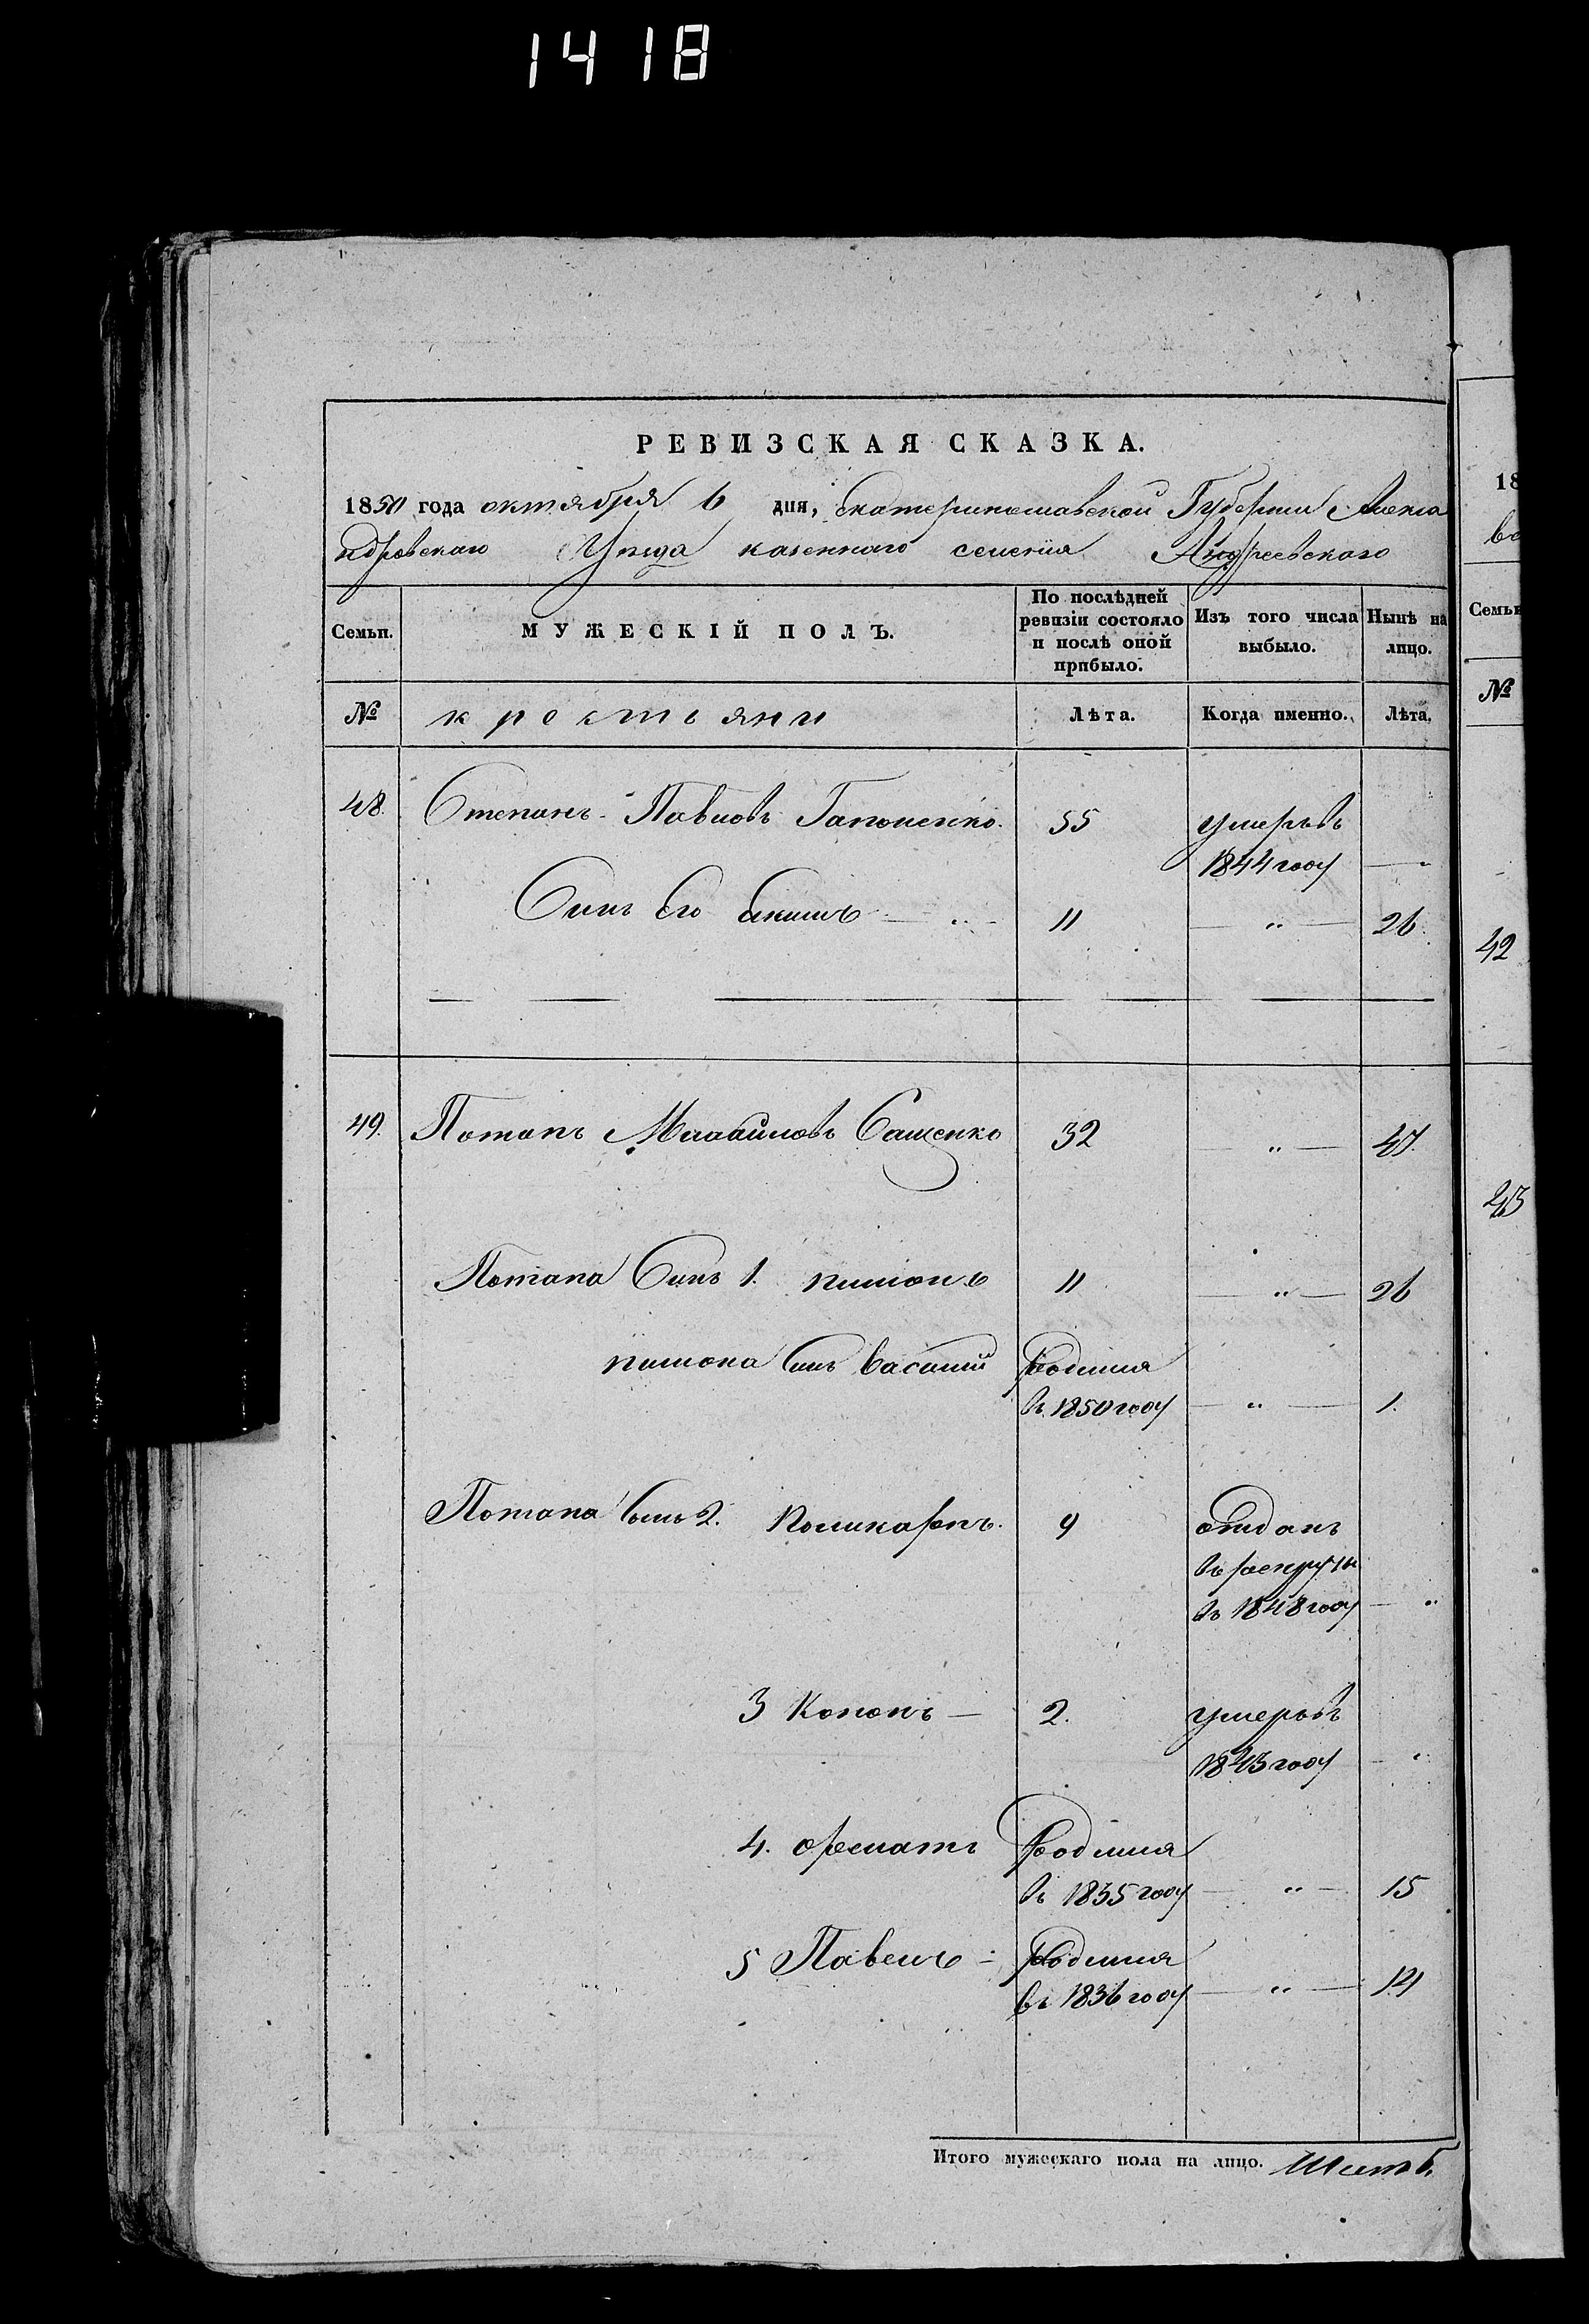 1418
РЕВИЗСКАЯ СКАЗКА.
1850 года октября 6 дня, Екатеринославской Губернии Алекса
ндровскаго Уѣзда казеннаго селенія Андреевскаго
Семьи.
МУЖЕСКІЙ ПОЛЪ.
По послѣдней ревизіи состояло и послѣ оной прибыло.
Изъ того числа выбыло.
Нынѣ на лицо.
№ крестьяни Лѣта. Когда именно. Лѣта.
48. Степанъ Павловъ Гапоненко. 55 умеръ въ
1844 году —
Сынъ его Екимъ — 11 — „ — 26.
49. Потапъ Михайловъ Сащенко 32 — „ — 47.
Потапа Сынъ 1. пимонъ 11 — „ — 26
пимона Сынъ Василий родился
въ 1850 году — „ — 1.
Потапа Сынъ 2. Поликарпъ. 9 отданъ
въ рекруты
въ 1848 году — „
3 Кононъ — 2. умеръ въ
1843 году — „
4. Родился
въ 1835 году — „ — 15
5 Павелъ — Родился
въ 1836 году — „ — 14
Итого мужескаго пола на лицо. Шесть 6.
18
во
Семьи
№
42
43